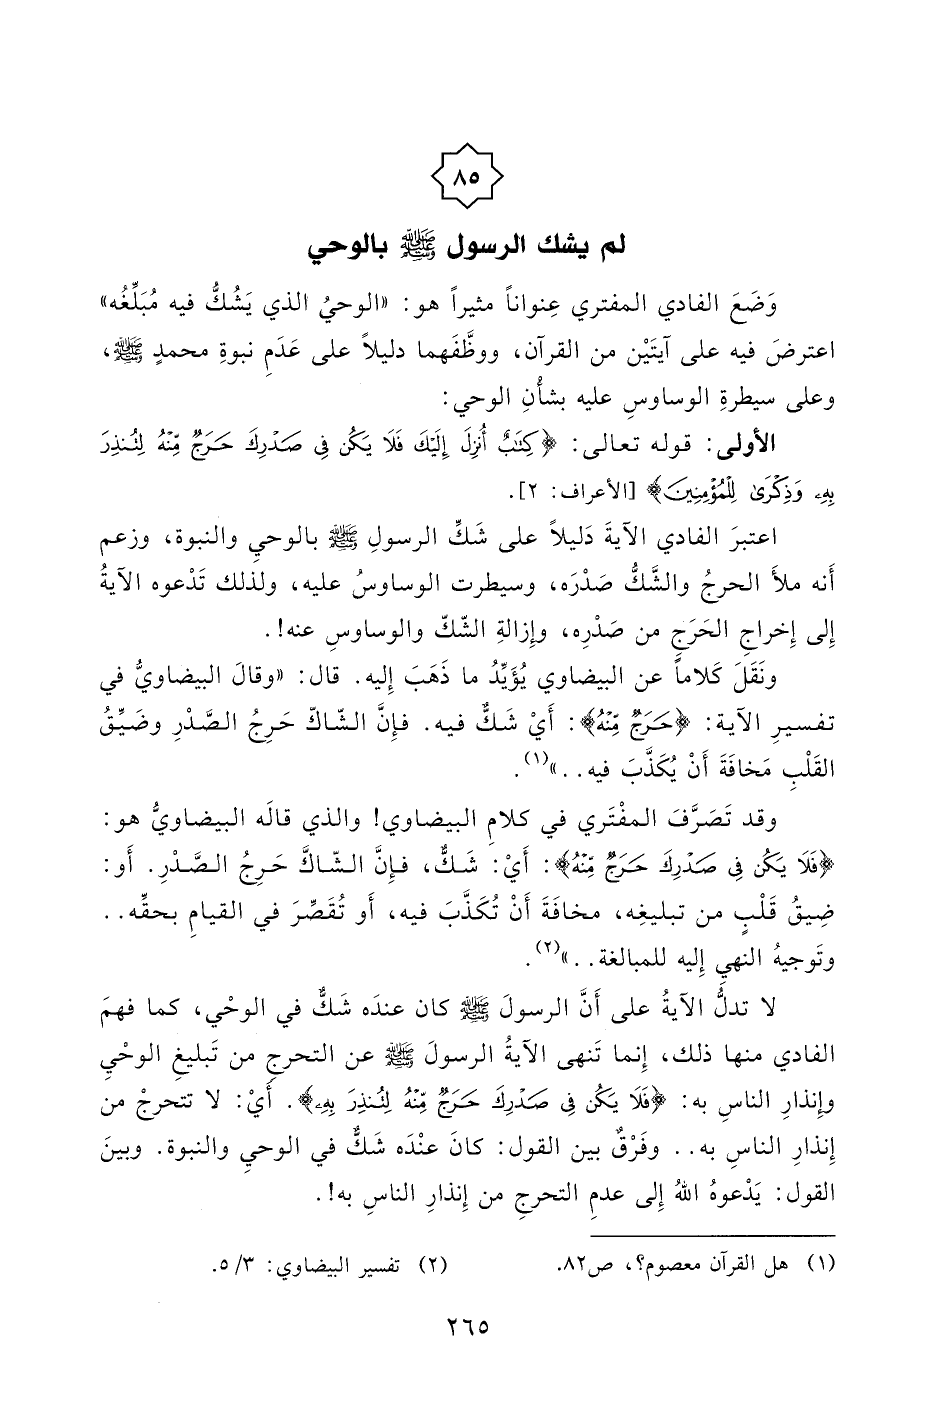 ٨٥
لم يشك الرسول ﷺ بالوحي
وَضَعَ الفادي المفتري عِنواناً مثيراً هو: «الوحيُ الذي يَشُكُّ فيه مُبَلِّغُه»
اعترضَ فيه على آيتَيْن من القرآن، ووظَّفَهما دليلاً على عَدَمِ نبوةِ محمدٍ ﷺ،
وعلى سيطرةِ الوساوسِ عليه بشأُنِ الوحي:
الأولى: قوله تعالى: ﴿كِتَٰبٌ أُنزِلَ إِلَيْكَ فَلَا يَكُن فِى صَدْرِكَ حَرَجٌ مِّنْهُ لِتُنذِرَ
بِهِۦ وَذِكْرَىٰ لِلْمُؤْمِنِينَ﴾ [الأعراف: ٢].
اعتبرَ الفادي الآيةَ دَليلاً على شَكِّ الرسولِ ﷺ بالوحيِ والنبوة، وزعم
أَنه ملأَ الحرجُ والشَّكُّ صَدْرَه، وسيطرت الوساوسُ عليه، ولذلك تَدْعوه الآيةُ
إِلى إِخراجِ الحَرَجِ من صَدْرِه، وإِزالةِ الشّكّ والوساوسِ عنه!.
ونَقَلَ كَلاماً عن البيضاوي يُؤَيِّدُ ما ذَهَبَ إِليه. قال: «وقالَ البيضاويُّ في
تفسيرِ الآية: ﴿حَرَجٌ مِّنْهُ﴾: أَيْ شَكٌّ فيه. فإِنَّ الشّاكّ حَرِجُ الصَّدْرِ وضَيِّقُ
القَلْبِ مَخافَةَ أَنْ يُكَذَّبَ فيه..»(١).
وقد تَصَرَّفَ المفْتَري في كلامِ البيضاوي! والذي قالَه البيضاويُّ هو:
﴿فَلَا يَكُن فِى صَدْرِكَ حَرَجٌ مِّنْهُ﴾: أَيْ: شَكٌّ، فإِنَّ الشّاكَّ حَرِجُ الصَّدْرِ. أَو:
ضِيقُ قَلْبٍ من تبليغِه، مخافَةَ أَنْ تُكَذَّبَ فيه، أَو تُقَصِّرَ في القيامِ بحقِّه..
وتَوجيهُ النهيِ إِليه للمبالغة..»(٢).
لا تدلُّ الآيةُ على أَنَّ الرسولَ ﷺ كان عندَه شَكٌّ في الوحْي، كما فهمَ
الفادي منها ذلك، إِنما تَنهى الآيةُ الرسولَ ﷺ عن التحرجِ من تَبليغِ الوحْيِ
وإِنذارِ الناسِ به: ﴿فَلَا يَكُن فِى صَدْرِكَ حَرَجٌ مِّنْهُ لِتُنذِرَ بِهِۦ﴾. أَيْ: لا تتحرجْ من
إِنذارِ الناسِ به.. وفَرْقٌ بين القول: كانَ عنْدَه شَكٌّ في الوحيِ والنبوة. وبينَ
القول: يَدْعوهُ اللهُ إِلى عدمِ التحرجِ من إِنذارِ الناسِ به!.
(١) هل القرآن معصوم؟، ص٨٢. (٢) تفسير البيضاوي: ٥/٣.
٢٦٥